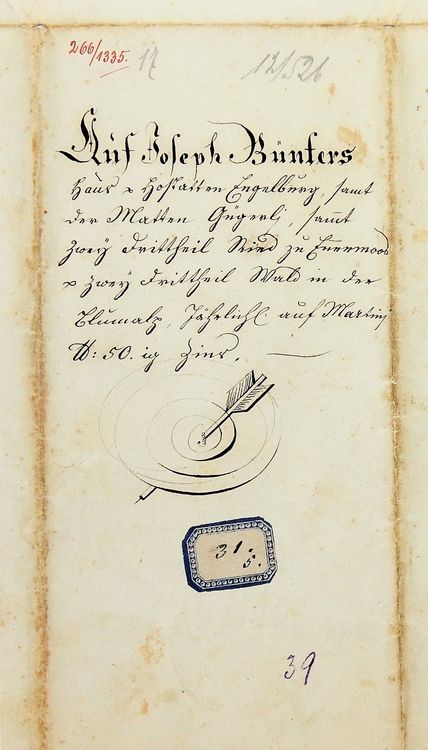 266/1335.
17
12/526
Auf Joseph Bünters
Haus & Hofstatten Engelburg, samt
der Matten Gügerlj, samt
zweÿ Drittheil Ried zu Ennermoos
& zweÿ Drittheil Wald in der
Blumalp, Jährlichl. auf Martinj
℔: 50. ig Zins.
31.
5.
39